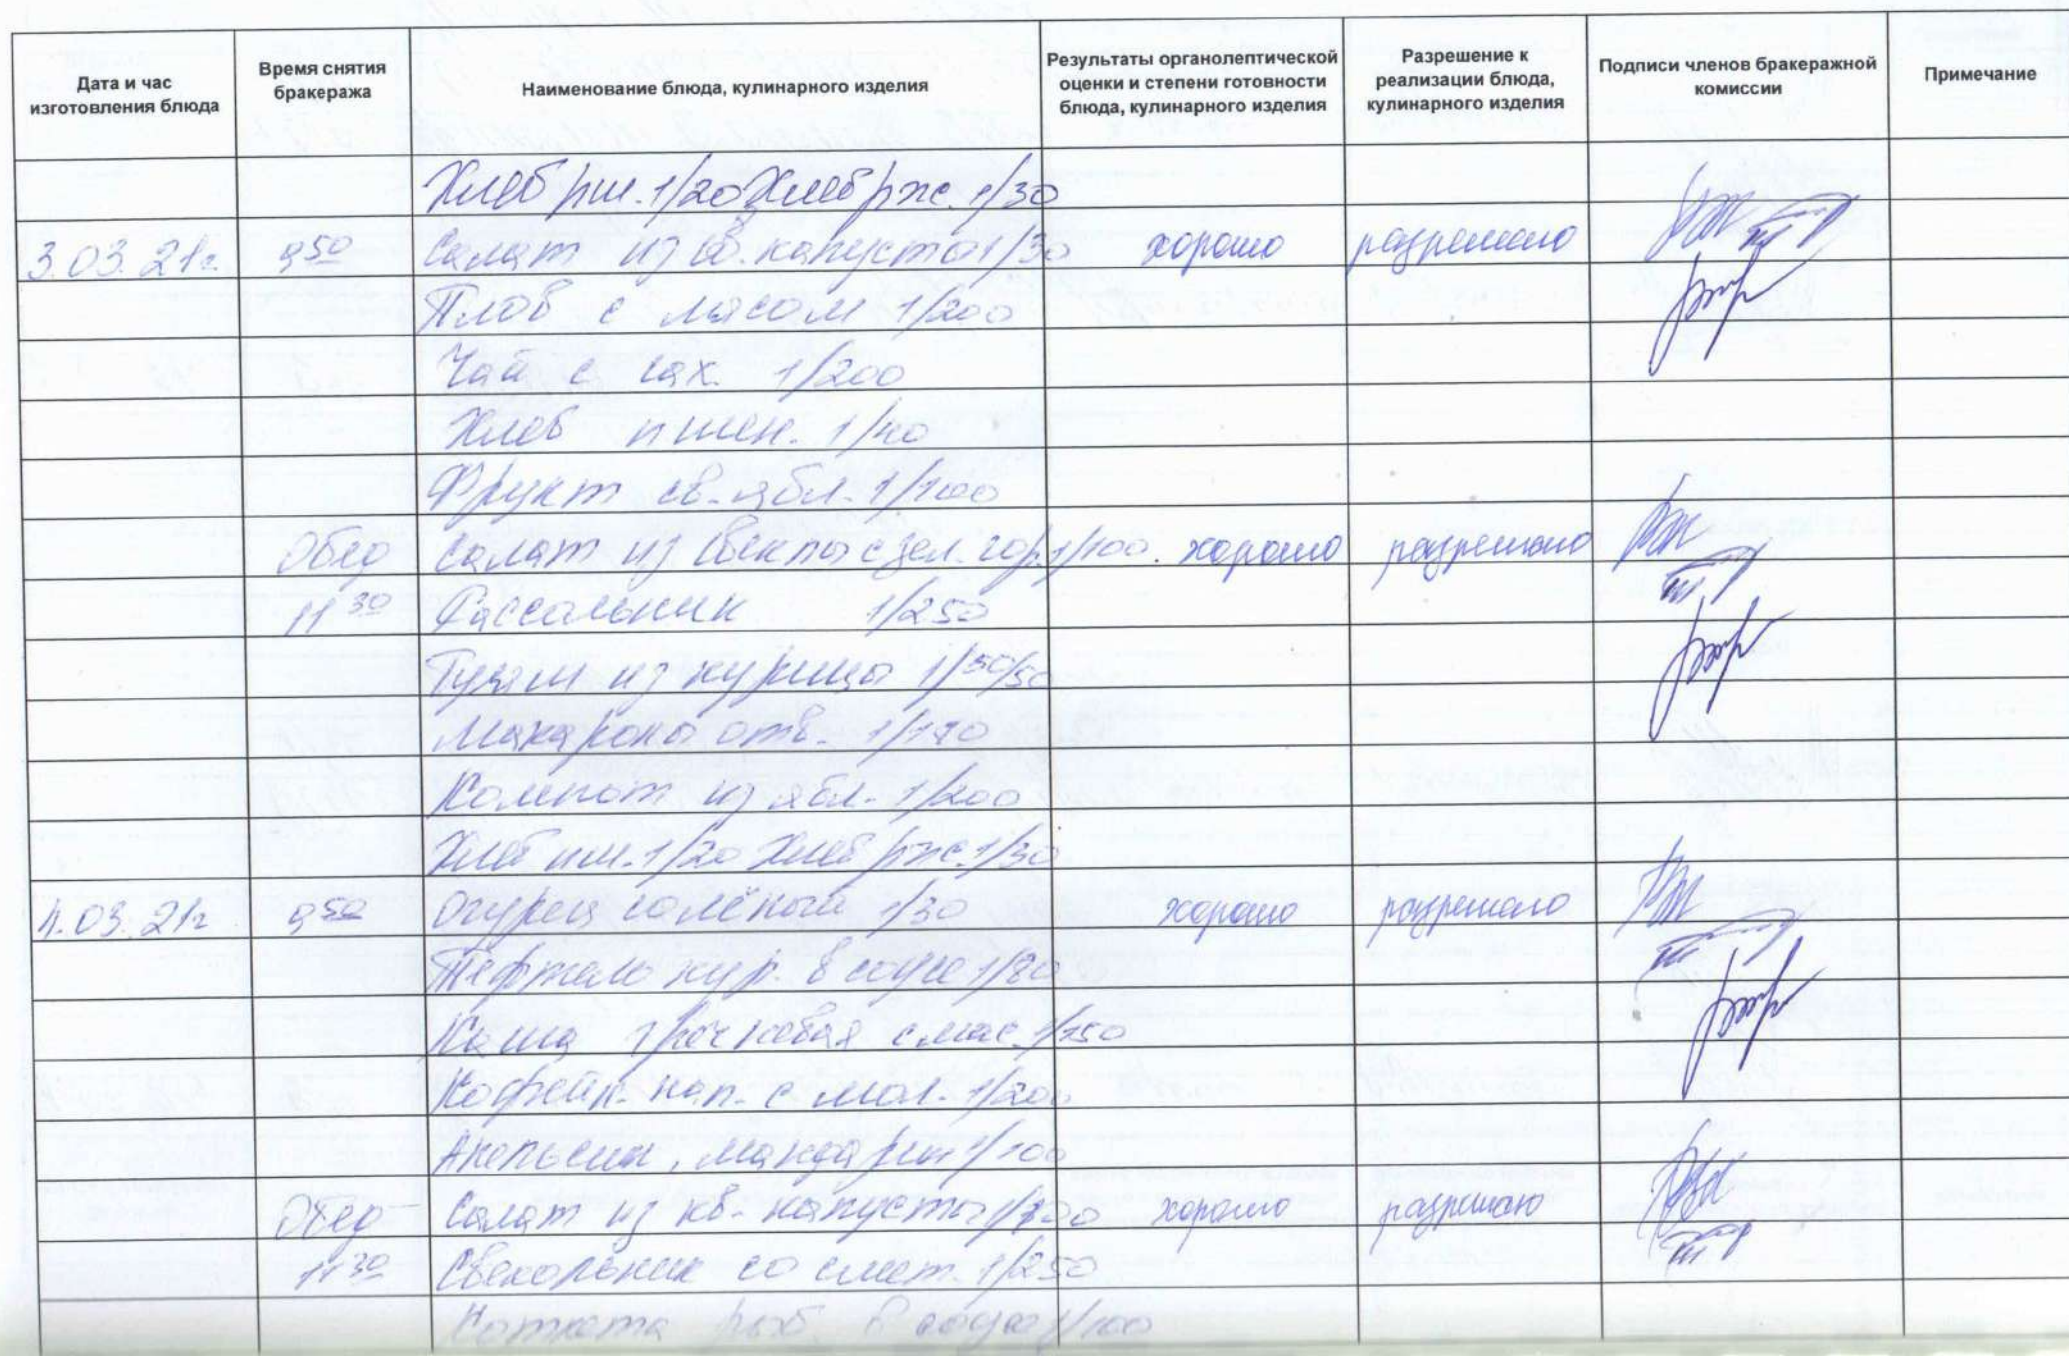 Дата и час изготовления блюда
Время снятия бракеража
Наименование блюда, кулинарного изделия
Результаты органолептической оценки и степени готовности блюда, кулинарного изделия
Разрешение к реализации блюда, кулинарного изделия
Подписи членов бракеражной комиссии
Примечание
Хлеб пш. 1/20 Хлеб рж. 1/30
3.03.21г. 9 50 Салат из св. капусты 1/30 хорошо разрешаю
Плов с мясом 1/200
Чай с сах. 1/200
Хлеб пшен. 1/40
Фрукт св. ябл. 1/100
Обед Салат из свеклы с зел. гор. 1/100. хорошо разрешаю
11 30 Рассольник 1/250
Гуляш из курицы 1/50/50
Макароны отв. 1/180
Компот из ябл. 1/200
Хлеб пш. 1/20 Хлеб рж. 1/30
4.03.21г 9 50 Огурец солёный 1/30 хорошо разрешаю
Тефтели кур. в соусе 1/80
Каша гречневая с мас. 1/150
Кофейн. нап. с мол. 1/200
Апельсин, мандарин 1/100
Обед Салат из кв. капусты 1/100 хорошо разрешаю
11 30 Свекольник со смет. 1/250
Котлета рыб. в соусе 1/100